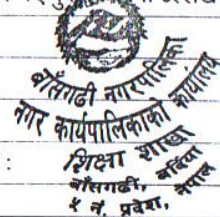 बाँसगढी नगरपालिका
नगर कार्यपालिकाको कार्यालय
शिक्षा शाखा
बाँसगढी, बर्दिया
५ नं. प्रदेश, नेपाल
: